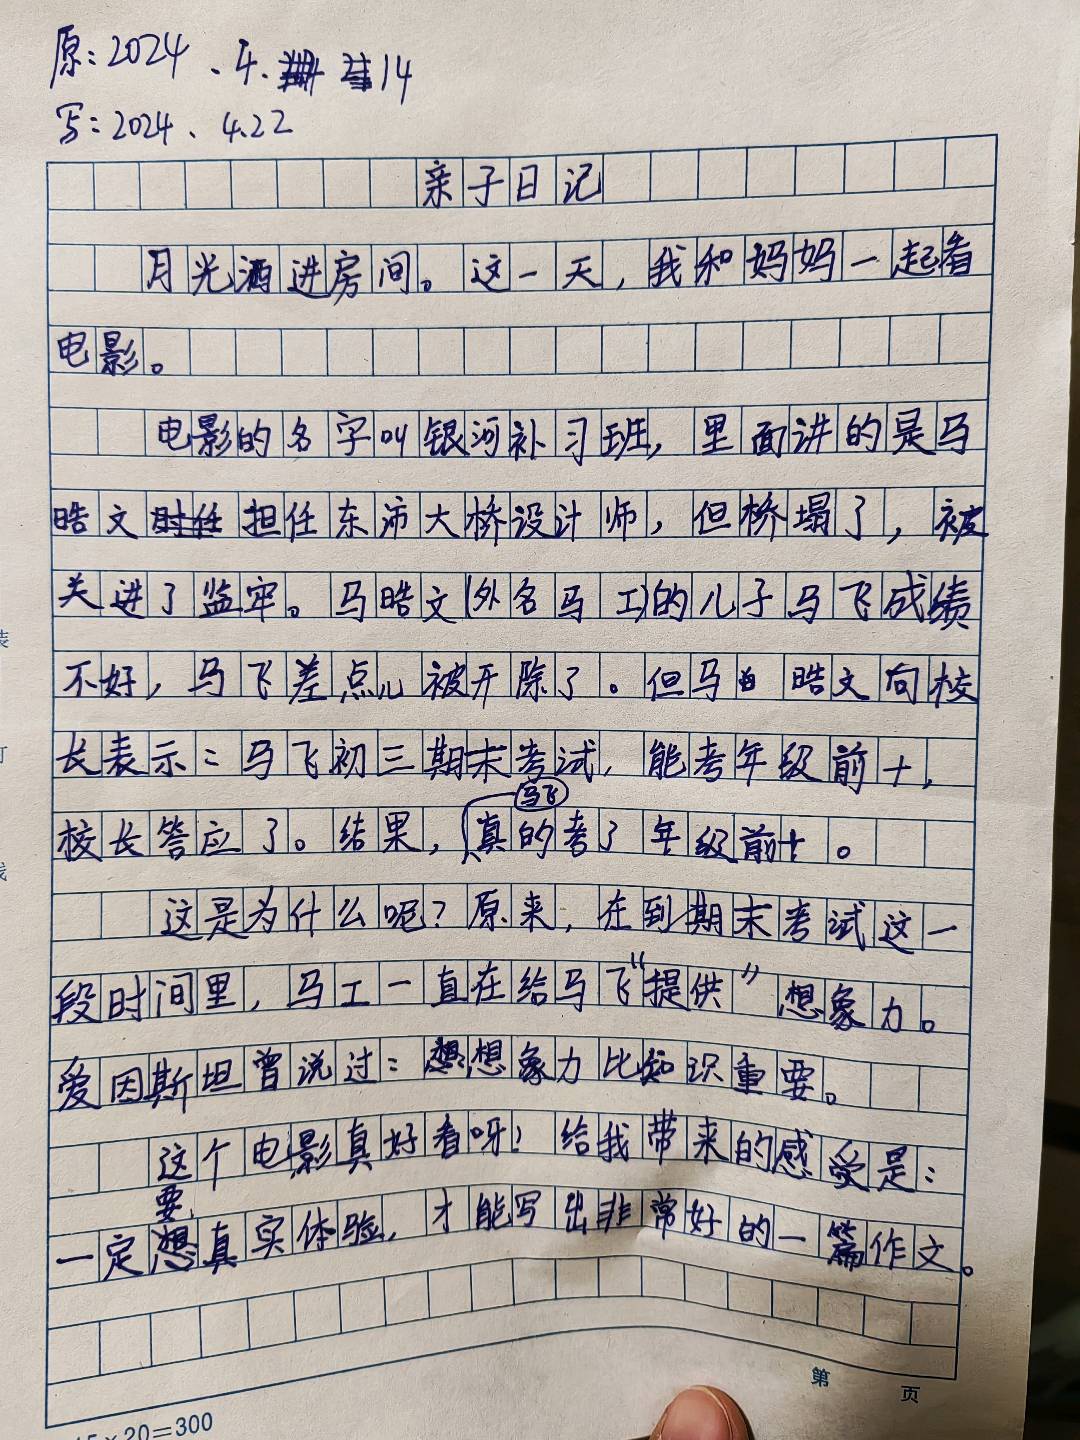 原：2024.4.14
写：2024.4.22
亲子日记
月光洒进房间。这一天，我和妈妈一起看
电影。
电影的名字叫银河补习班，里面讲的是马
皓文担任东沛大桥设计师，但桥塌了，被
关进了监牢。马皓文(外名马工)的儿子马飞成绩
不好，马飞差点儿被开除了。但马皓文向校
长表示：马飞初三期末考试，能考年级前十，
校长答应了。结果，马飞真的考了年级前十。
这是为什么呢？原来，在到期末考试这一
段时间里，马工一直在给马飞“提供”想象力。
爱因斯坦曾说过：想象力比知识重要。
这个电影真好看呀！给我带来的感受是：
一定要真实体验，才能写出非常好的一篇作文。
第 页
15×20=300
装
订
线